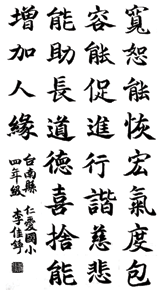 寬恕能恢宏氣度包
容能促進行諧慈悲
能助長道德喜捨能
增加人緣
台南縣仁愛國小
四年級李佳